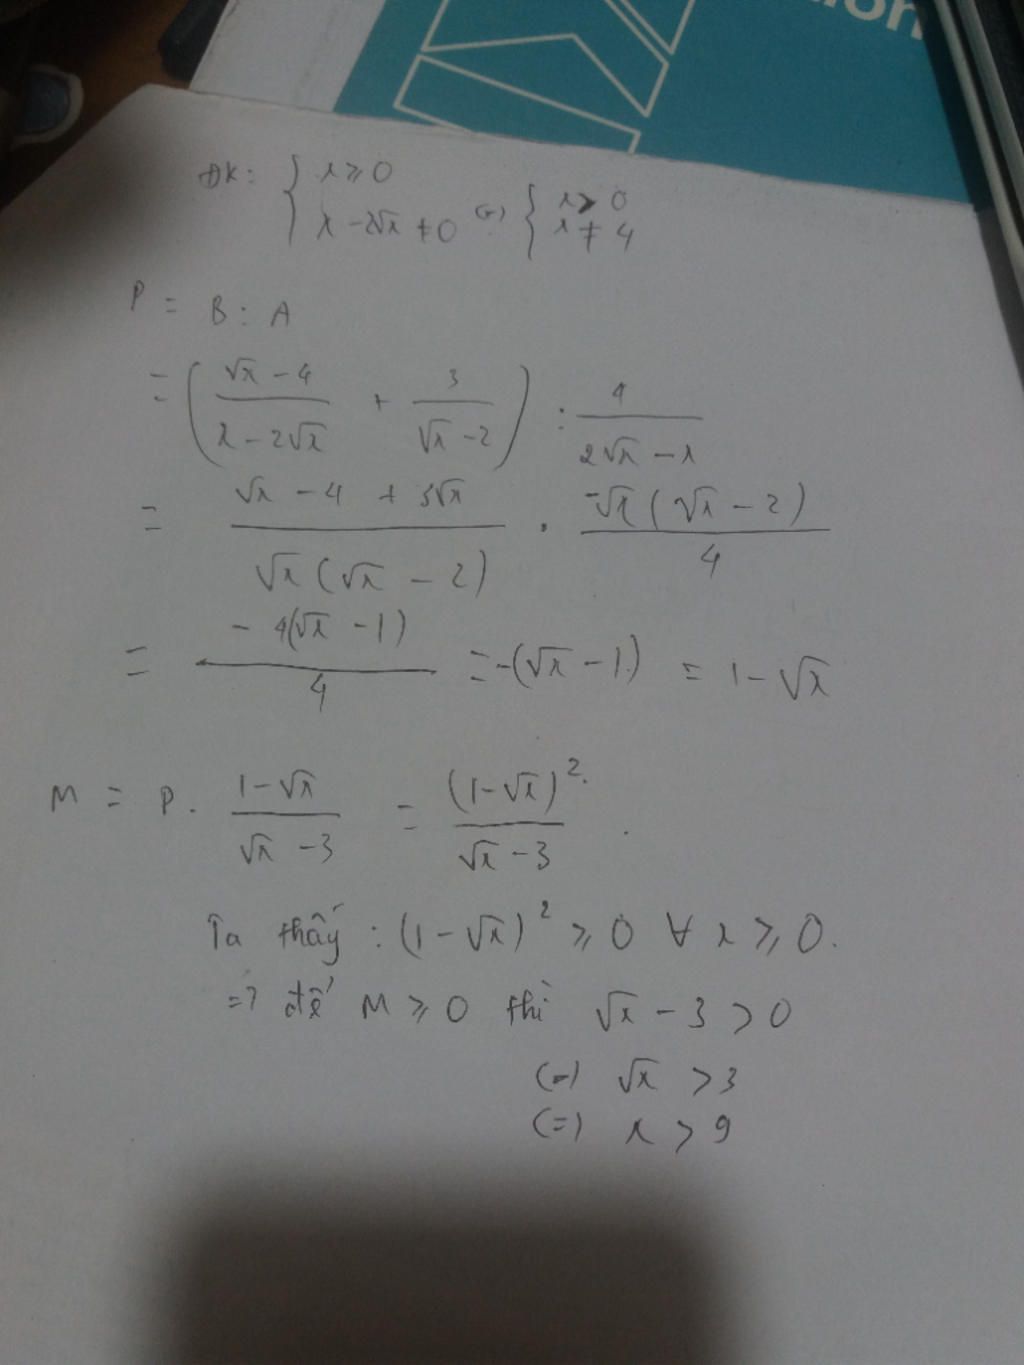 ĐK: { x ≥ 0
x - 2√x ≠ 0 (=) { x > 0
x ≠ 4
P = B : A
= ( (√x - 4)/(x - 2√x) + 3/(√x - 2) ) : 4/(2√x - x)
= (√x - 4 + 3√x)/(√x(√x - 2)) . (-√x(√x - 2))/4
= (-4(√x - 1))/4 = -(√x - 1) = 1 - √x
M = P . (1 - √x)/(√x - 3) = (1 - √x)²/(√x - 3) .
Ta thấy : (1 - √x)² ≥ 0 ∀ x ≥ 0.
=> để M ≥ 0 thì √x - 3 > 0
(=) √x > 3
(=) x > 9